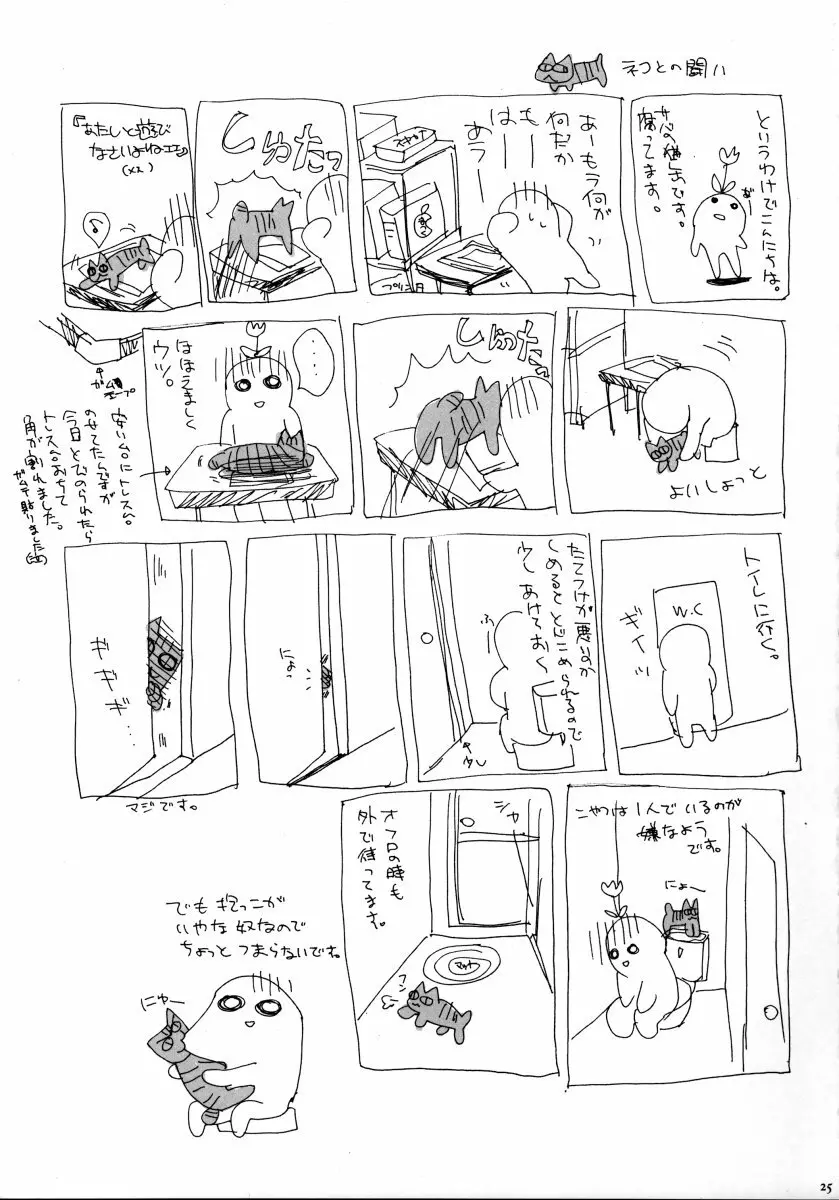 ネコとの闘い
というわけでこんにちは。
サバの猫缶です。
腐ってます。
あーもう何がい
何だか
もーー
はーー
あうー
プリンタ
しゅたっ
『あたしと遊び
なさいよねェェ』
よいしょっと
しゅったっ
・・・
ほほえましく
ウツ。
ガムテープ
安い台にトレス台
のせてたんですが
今日とびのられたら
トレス台おちて
角が割れました。
ガムテ貼りました
トイレに行く。
W.C
ギイッ
たてつけが悪いのか
しめるととじこめられるので
少しあけておく
ふー
少し
にょっ
ギギギ…
マジです。
こやつは1人でいるのが
嫌なよう
です。
にょー
オフロの時も
外で待ってます。
シャー
マット
フン
でも抱っこが
いやな奴なので
ちょっとつまらないです。
にゅー
25